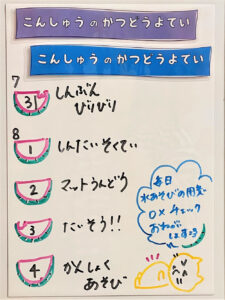 こんしゅうのかつどうよてい
こんしゅうのかつどうよてい
7
31 しんぶん
びりびり
8
1 しんたいそくてい
2 マットうんどう
3 たいそう!!
4 かんしょく
あそび
毎日
水あそびの用意・
○×チェック
おねがい
します